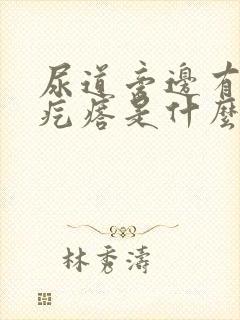 尿道旁邊有
疙瘩是什麼
林秀濤